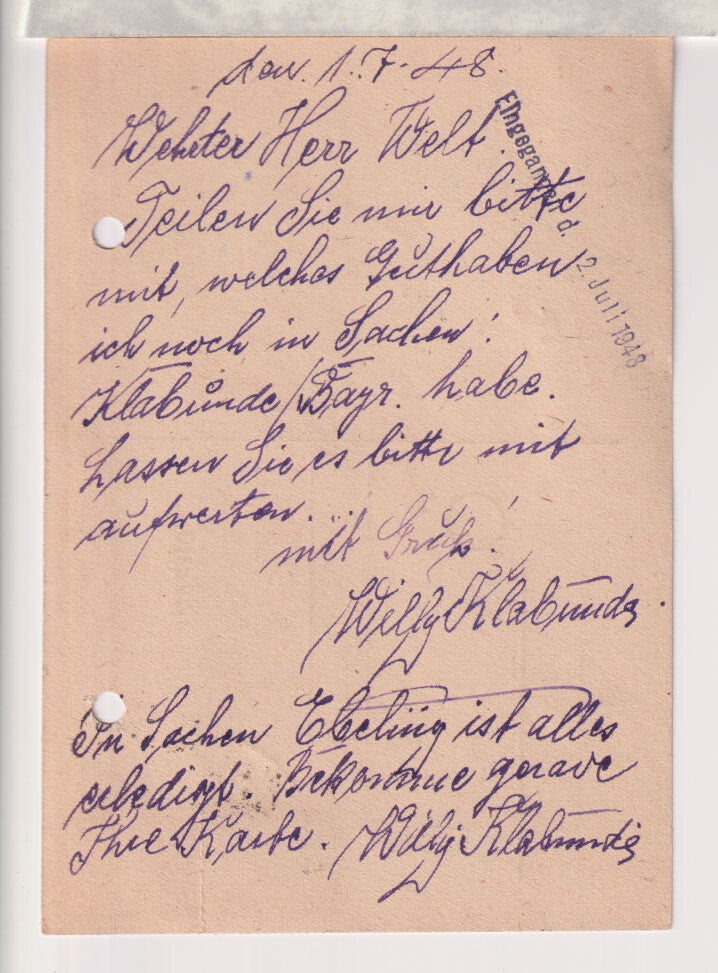 den. 1.7.48.
Wehrter Herr Welt.
Eingegangen d. 2. Juli 1948
Teilen Sie mir bitte
mit, welches Guthaben
ich noch in Sachen:
Klabunde/Bayr. habe.
Lassen Sie es bitte mit
aufwerten...
mit Gruß!
Willy Klabunde.
In Sachen Ebeling ist alles
erledigt. Bekomme gerade
Ihre Karte. Willy Klabunde